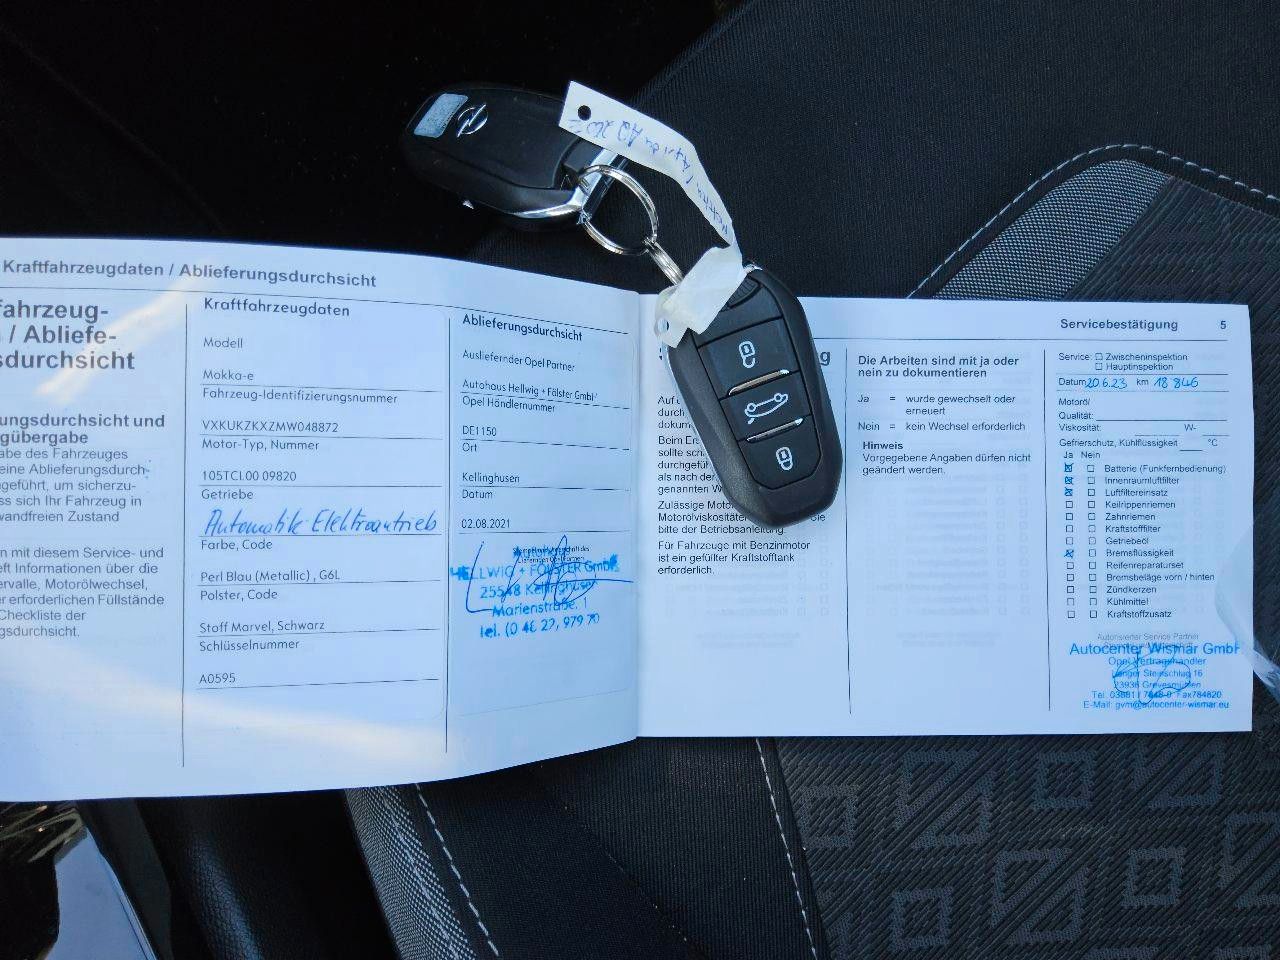 Kraftfahrzeugdaten / Ablieferungsdurchsicht
fahrzeug-
/ Abliefe-
sdurchsicht
ungsdurchsicht und
gübergabe
be des Fahrzeuges
eine Ablieferungsdurch-
geführt, um sicherzu-
ss sich Ihr Fahrzeug in
wandfreien Zustand
n mit diesem Service- und
eft Informationen über die
ervalle, Motorölwechsel,
er erforderlichen Füllstände
Checkliste der
gsdurchsicht.
Kraftfahrzeugdaten
Modell
Mokka-e
Fahrzeug-Identifizierungsnummer
VXKUKZKXZMW048872
Motor-Typ, Nummer
105TCL00 09820
Getriebe
Automatik Elektroantrieb
Farbe, Code
Perl Blau (Metallic) , G6L
Polster, Code
Stoff Marvel, Schwarz
Schlüsselnummer
A0595
Ablieferungsdurchsicht
Ausliefernder Opel Partner
Autohaus Hellwig + Fölster GmbH
Opel Händlernummer
DE1150
Ort
Kellinghusen
Datum
02.08.2021
HELLWIG + FÖLSTER GmbH
25548 Kellinghusen
Marienstraße 1
g
Auf
durch
dokum
Beim Ers
sollte sch
durchgefüh
als nach der
genannten W
Zulässige Moto
Motorölviskositäten Sie
bitte der Betriebsanleitung.
Für Fahrzeuge mit Benzinmotor
ist ein gefüllter Kraftstofftank
erforderlich.
Die Arbeiten sind mit ja oder
nein zu dokumentieren
Ja = wurde gewechselt oder
erneuert
Nein = kein Wechsel erforderlich
Hinweis
Vorgegebene Angaben dürfen nicht
geändert werden.
Servicebestätigung 5
Service: Zwischeninspektion
Hauptinspektion
Datum 20.6.23 km 18 846
Motoröl
Qualität:
Viskosität: W-
Gefrierschutz, Kühlflüssigkeit °C
Ja Nein
Batterie (Funkfernbedienung)
Innenraumluftfilter
Luftfiltereinsatz
Keilrippenriemen
Zahnriemen
Kraftstofffilter
Getriebeöl
Bremsflüssigkeit
Reifenreparaturset
Bremsbeläge vorn / hinten
Zündkerzen
Kühlmittel
Kraftstoffzusatz
Autorisierter Service Partner
Autocenter Wismar GmbH
Opel Vertragshändler
Langer Steinschlag 16
23936 Grevesmühlen
Tel. 03881 / 7848-0 Fax784820
E-Mail: gvm@autocenter-wismar.eu